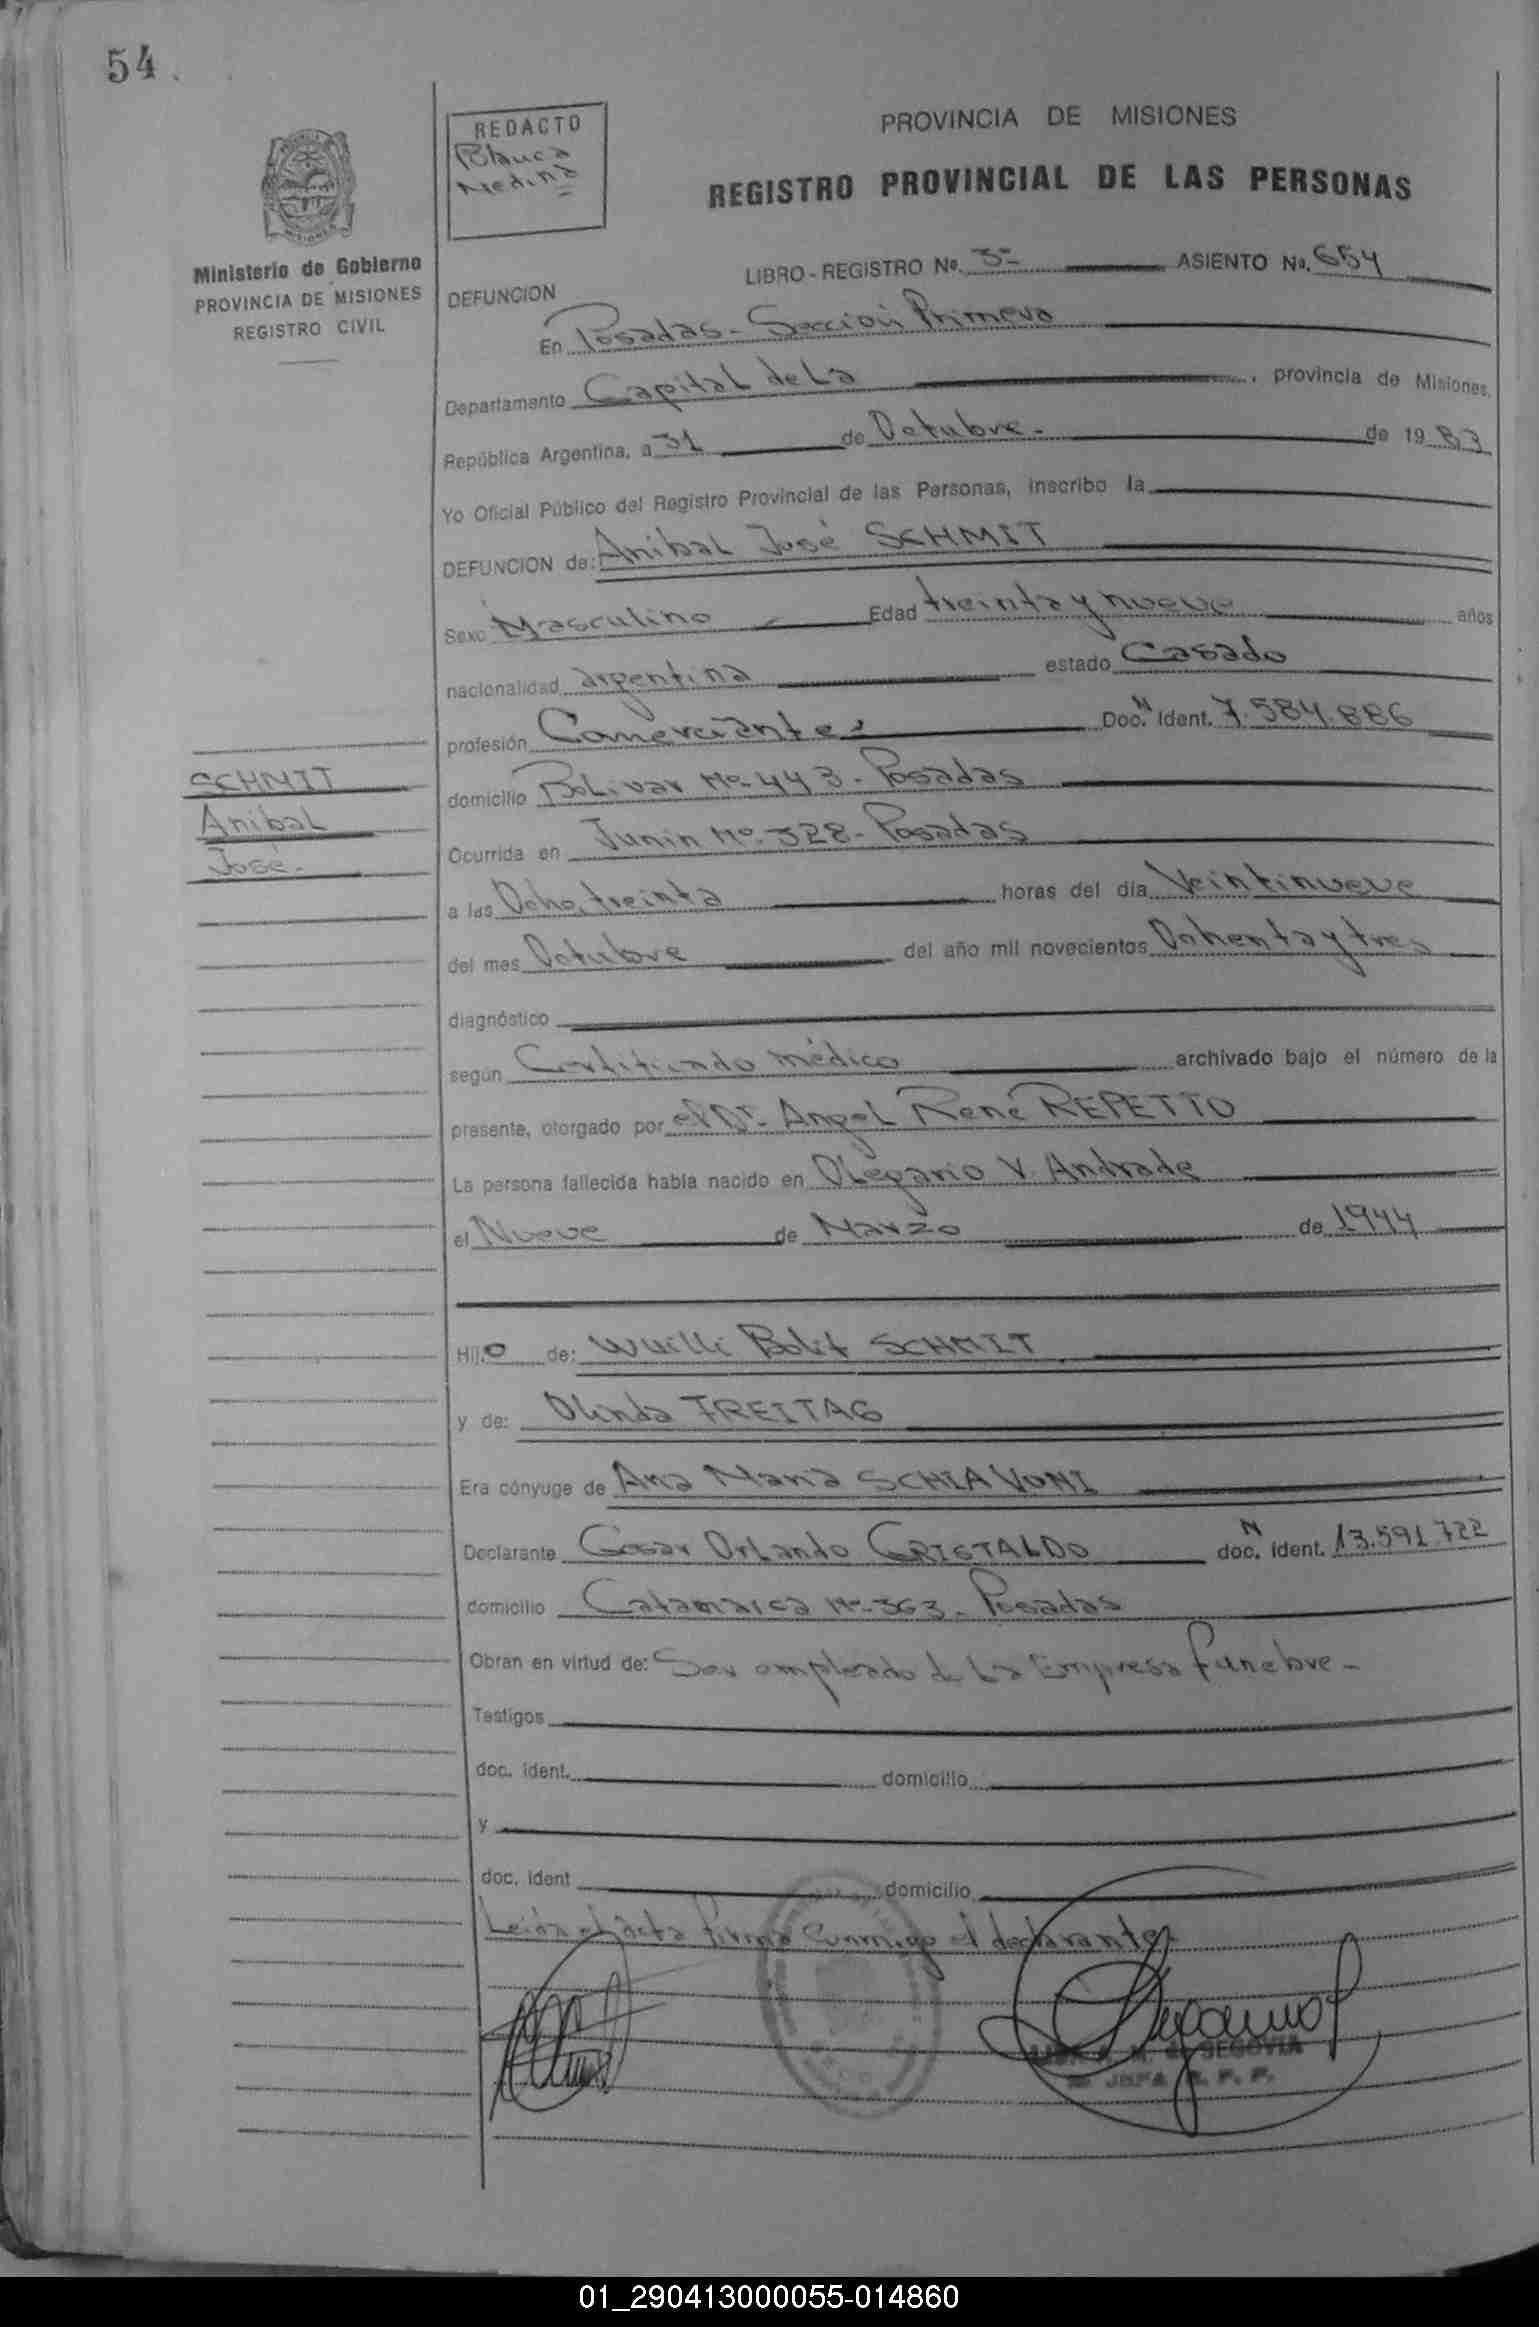 54.
REDACTO
Blanca
Medina
Ministerio de Gobierno
PROVINCIA DE MISIONES
REGISTRO CIVIL
PROVINCIA DE MISIONES
REGISTRO PROVINCIAL DE LAS PERSONAS
LIBRO - REGISTRO Nº. 3º ASIENTO Nº. 654
DEFUNCION
En Posadas - Sección Primera
Departamento Capital de La , provincia de Misiones,
República Argentina, a 31 de Octubre - de 19 83
Yo Oficial Público del Registro Provincial de las Personas, inscribo la
DEFUNCION de: Anibal José SCHMIT
Sexo Masculino Edad treinta y nueve años
nacionalidad argentina estado Casado
profesión Comerciante Doc. N Ident. 7.584.886
domicilio Bolivar Nº 443 - Posadas
Ocurrida en Junin Nº 328 - Posadas
a las Ocho, treinta horas del día Veintinueve
del mes Octubre del año mil novecientos Ochenta y tres
diagnóstico
según Certificado médico archivado bajo el número de la
presente, otorgado por el Dr. Angel René REPETTO
La persona fallecida había nacido en Olegario V. Andrade
el Nueve de Marzo de 1944
Hijo de: Wuilli Bolit SCHMIT
y de: Olinda FREITAG
Era cónyuge de Ana Maria SCHIAVONI
Declarante Cesar Orlando CRISTALDO doc. N ident. 13.591.722
domicilio Catamarca Nº 363 - Posadas
Obran en virtud de: Ser empleado de La Empresa funebre -
Testigos
doc. ident. domicilio
y
doc. ident domicilio
Leida el acta firma conmigo el declarante
SCHMIT
Anibal
José -
SEGOVIA
JEFA R. P. P.
01_290413000055-014860